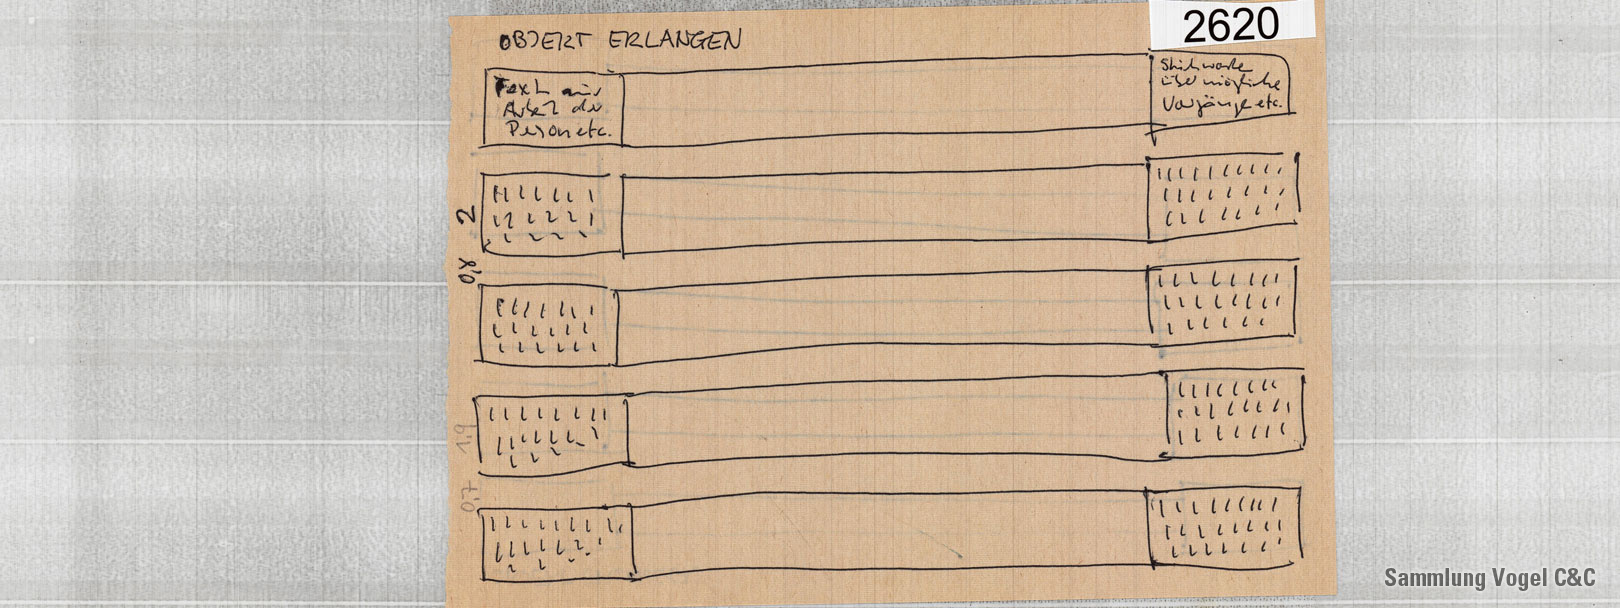 2620
OBJEKT ERLANGEN
Text
Arbeit der
Person etc.
Stichworte
über mögliche
Vorgänge etc.
2
0,8
1,9
0,7
Sammlung Vogel C&C